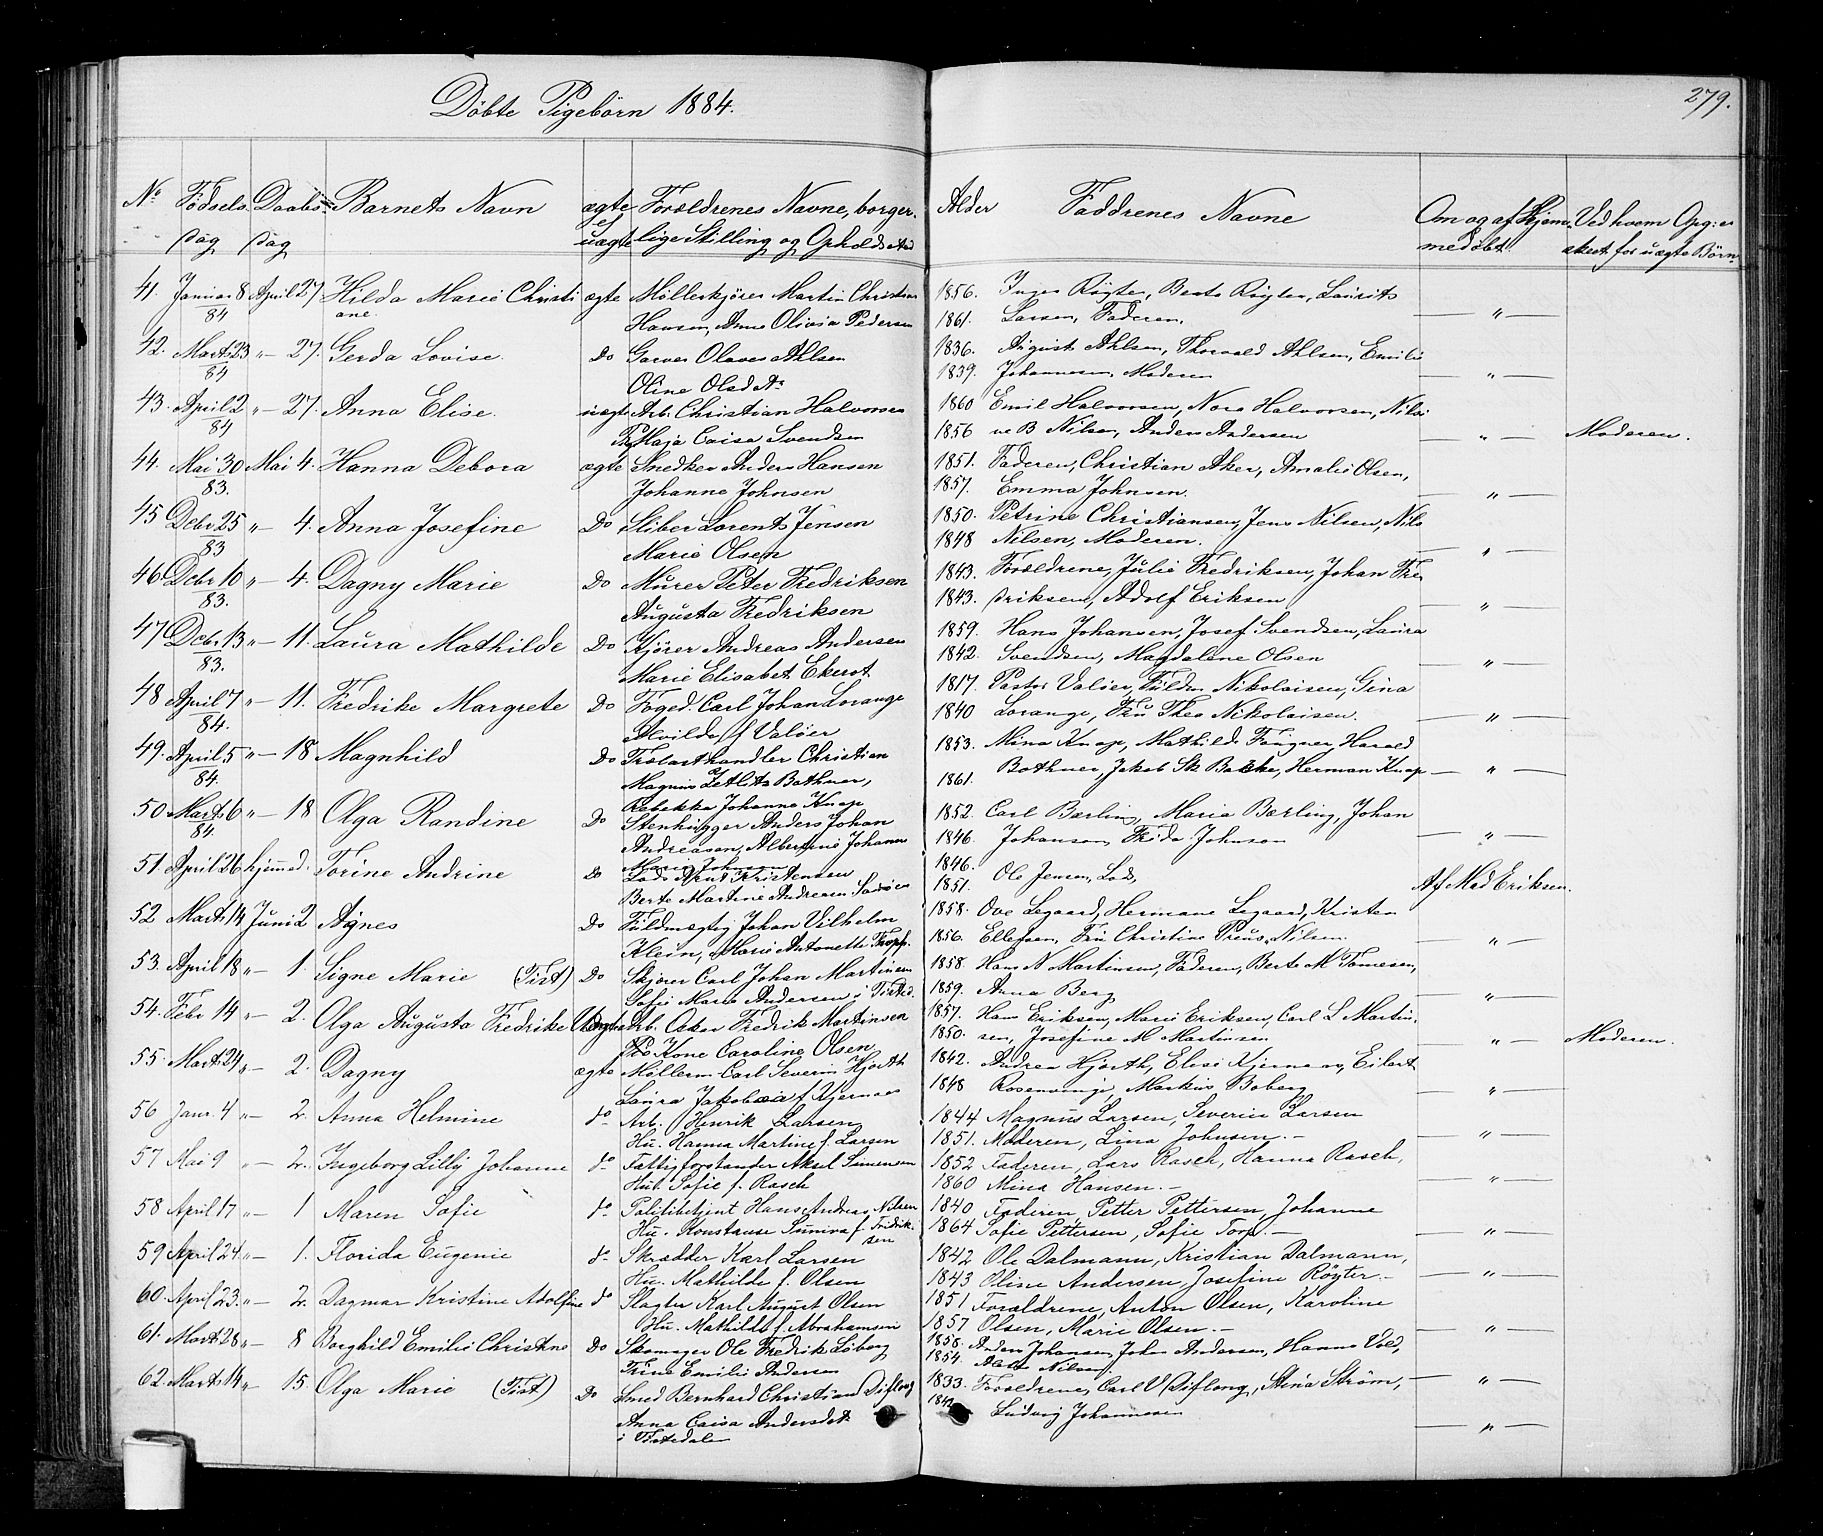 Döbte Pigebörn 1884.
279.
No Födsels Daabs Barnets Navn ægte Forældrenes Navne, borger. Alder Faddrenes Navne Om og af Hjem Ved hvem Opg: er
dag dag el uægte lige Stilling og Opholdsted medöbt. skeet for uægte Börn.
41. Januar 8 April 27. Hilda Marie Christi ægte Möllerkjörer Martin Christian 1856. Inger Röyter, Berte Röyter, Laurits
84 ane. Hansen, Anne Olivia Pedersen 1861. Larsen, Faderen. — " —
42. Marts 23 " — 27. Gerda Lovise. Do Garver Olaves Ahlsen 1836. August Ahlsen, Thorvald Ahlsen, Emilie
84 Oline Olsd At 1839. Johannesen, Moderen — " —
43. April 2 " — 27. Anna Elise. uægte Arb. Christian Halvorsen 1860 Emil Halvorsen, Nora Halvorsen, Nilsi
84 Maja Caisa Svendsen 1856 ne B Nilsen, Anders Andersen — " — Moderen.
44. Mai 30 Mai 4. Hanna Debora ægte Snedker Anders Hansen 1851. Faderen, Christian Aker, Amalie Olsen,
83. Johanne Johnsen 1857. Emma Johnsen. — " —
45 Dcbr 25 " — 4. Anna Josefine Do Sliber Lorents Jensen 1850. Petrine Christiansen, Jens Nilsen, Nils
83 Marie Olsen 1848 Nilsen, Moderen. — " —
46. Dcbr 10 " — 4. Dagny Marie Do Murer Peter Fredriksen 1843. Forældrene, Julie Fredriksen, Johan Fre
83. Augusta Fredriksen 1843. driksen, Adolf Eriksen — " —
47 Dcbr 13 " — 11. Laura Mathilde Do Kjörer Andreas Andersen 1859. Hans Johansen, Josef Svendsen, Laura
83. Marie Elisabet Ekerot 1842. Svendsen, Magdalene Olsen — " —
48 April 7 " — 11. Fredrike Margrete Do Foged. Carl Johan Lorange 1817. Pastor Valöer, Fuldm Nikolaisen, Gina
84. Alvilde f Valöer 1840 Lorange, Fru Thea Nikolaisen. — " —
49. April 5 " — 18 Magnhild Do Trælasthandler Christian 1853. Mina Knap, Mathilde Fougner, Harald
84. Magnus Zetlits Bothner, 1861. Bothner, Jakob Sk Backe, Herman Knap — " —
Rebekka Johanne Knap
50 Marts 6 " — 18 Olga Randine Do Stenhugger Anders Johan 1852. Carl Bærling, Maria Bærling, Johan
84. Andreasen, Albertine Johanne 1846. Johansen, Frida Johnson — " —
Marie Johnson
51. April 26 hjemmed. Torine Andrine Do Lods Knut Kristensen 1846. Ole Jensen, Lods, Af Mad Eriksen.
Berte Martine Andrersen 1851.
52 Marts 14 Juni 2 Agnes Do Fuldmægtig Johan Vilhelm 1858. Ove Legaard, Hermane Legaard, Kristen
Klein, Marie Antonette Tropf. 1856. Ellefsen, Fru Christine Preus, Nilsen. — " —
53. April 18 " — 1. Signe Marie (Tist) Do Skjörer Carl Johan Martinsen 1858. Hans N Martinsen, Faderen, Berte M Tomesen,
Sofie Marie Andersen i Tisted. 1859. Anna Berg — " —
54. Febr 14 " — 2. Olga Augusta Fredrike Uægte Arb. Oskar Fredrik Martinsen 1857. Hans Eriksen, Marie Eriksen, Carl L Martin.
Kone Caroline Olsen 1850. sen, Josefine M Martinsen — " — Moderen.
55. Marts 24 " — 2. Dagny ægte Möllerm. Carl Severin Hjorth 1842. Andrea Hjorth, Elise Kjernæs, Eilert
Laura Jakobæa f Kjernæs 1848 Rosenvinge, Markus Boberg — " —
56 Janr. 4 " — 2. Anna Helmine do Arb. Henrik Larsen 1844 Magnus Larsen, Severin Larsen
Hu. Hanna Martine f. Larsen 1851. Moderen, Lina Johnsen. — — " —
57 Mai 9 " — 2. Ingeborg Lilly Johanne do Fattigforstander Aksel Simensen 1852 Faderen, Lars Rasch, Hanna Rasch,
Hu. Sofie f. Rasch 1860 Mina Hansen. — — " —
58 April 17 " — 1 Maren Sofie do Politibetjent Hans Andreas Nilsen 1840 Faderen, Petter Pettersen, Johanne
Hu. Konstanse Suniva f. Fredrik- 1864 Sofie Pettersen, Sofie Torp. — — " —
sen
59 April 24. " — 1. Florida Eugenie do Skrædder Karl Larsen 1842 Ole Dalmann, Kristian Dalmann,
Hu. Mathilde f. Olsen 1843 Oline Andersen, Josefine Röyter. — — " —
60. April 23. " — 2. Dagmar Kristine Adolfine do Slagter Karl August Olsen 1851 Forældrene, Anton Olsen, Karoline
Hu. Mathilde f. Abrahamsen 1857 Olsen, Marie Olsen. — — " —
61. Marts 28 " — 8 Borghild Emilie Christine Do Skomager Ole Fredrik Löberg 1858. Anders Johansen, John Andersen, Hanna Vold,
Trine Emilie Andersen 1854. Nilsen — " —
62. Marts 14 " — 15. Olga Marie (Tist) Do Smed Bernhard Christian Disflong 1833. Forældrene, Carl V Disflong, Stina Ström,
Anna Caisa Andersdat 1842 Ludvig Johannesen — " —
i Tistedalen